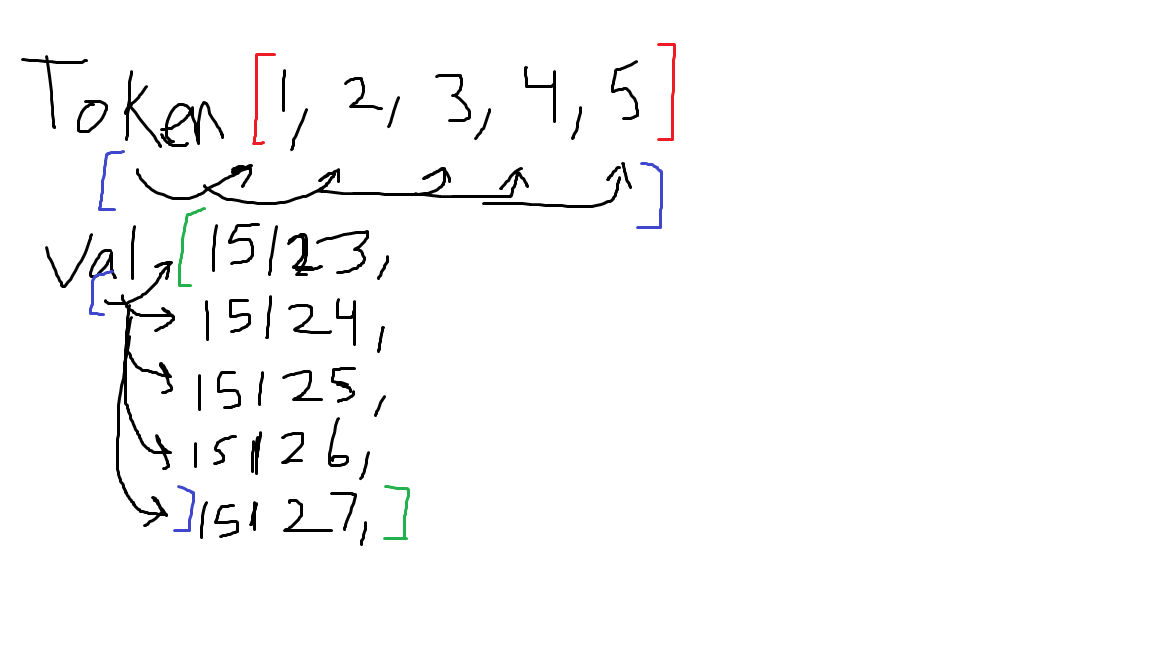 Token [1, 2, 3, 4, 5]
[ ]
Val [15123,
[
15124,
15125,
15126,
]15127,]